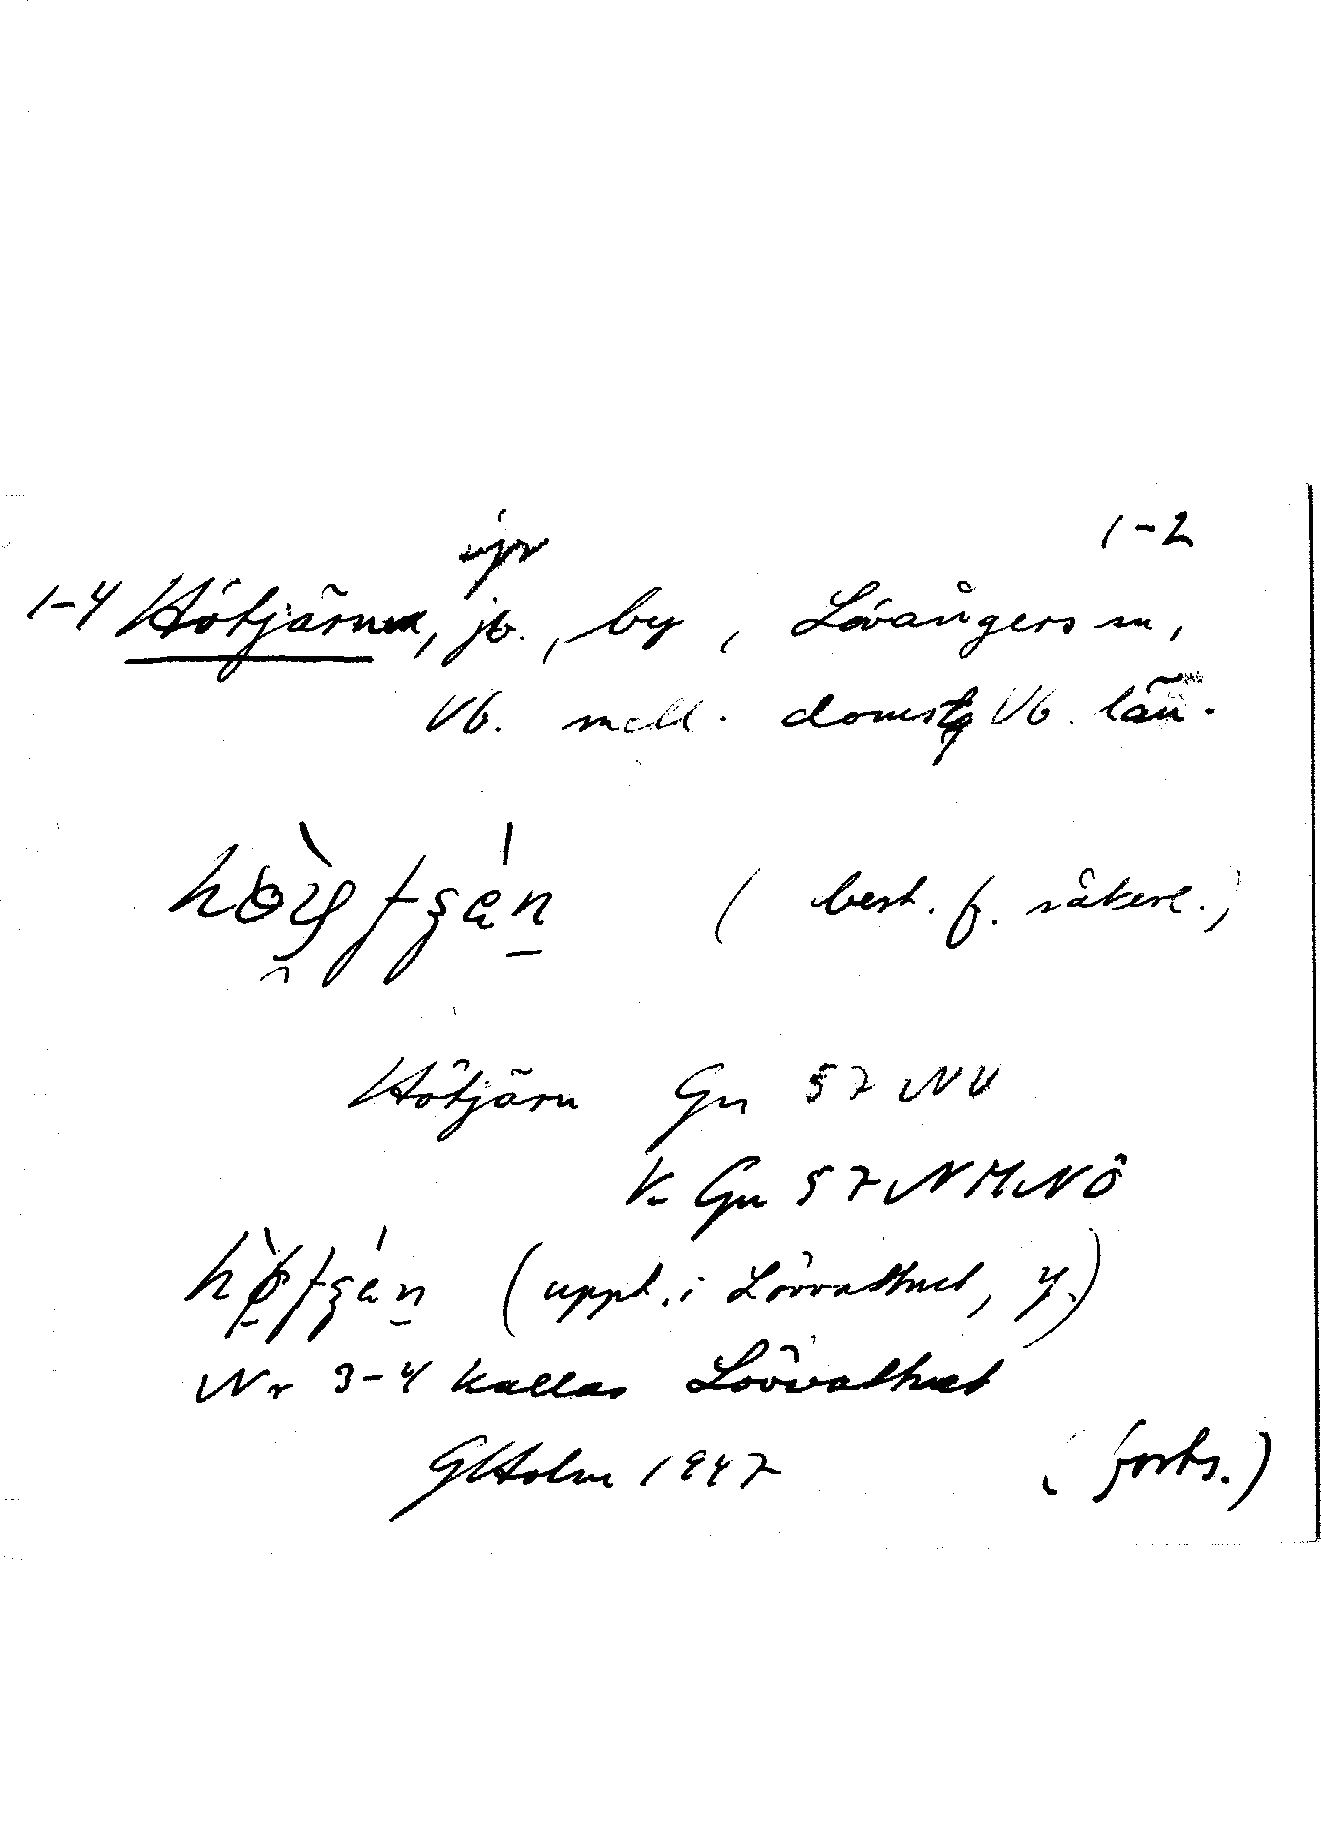 1-2
1-4 Hötjärn, jb., by, Lövångers sn,
Vb. mell. doms Vb. län.
(best. f. säkerl.)
Hötjärn Gn 57 NV
V. Gn 57 NMNÖ
(uppt. i Lövvattnet, y.)
Nr 3-4 kallas Lövvattnet
GHolm 1947 (forts.)